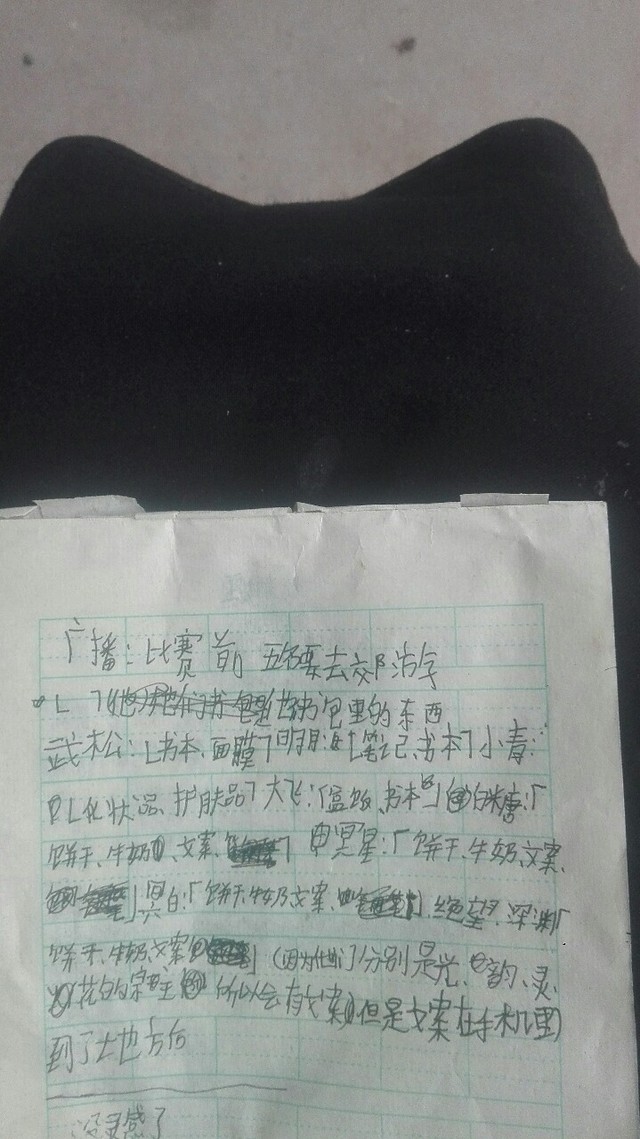 广播：比赛前 五名要去郊游字
L ㄱ 他她书包里的东西
武松：L书本、面膜ㄱ明明海L笔记、书本ㄱ小青：
L化状品、护肤品ㄱ大飞：「盒饭、书本」白糖：「
饼干、牛奶、文案、ㄱ 冥星：「饼干、牛奶、文案、
」冥白：「饼干、牛奶、文案、」、绝望、深渊「
饼干、牛奶、文案」（因为他们分别是光、韵、灵、
花的宗主 所以会有文案 但是文案在手机里）
到了土也方后
没灵感了